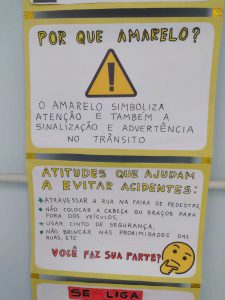 POR QUE AMARELO?
O AMARELO SIMBOLIZA
ATENÇÃO E TAMBÉM A
SINALIZAÇÃO E ADVERTÊNCIA
NO TRÂNSITO
ATITUDES QUE AJUDAM
A EVITAR ACIDENTES:
ATRAVESSAR A RUA NA FAIXA DE PEDESTRE
NÃO COLOCAR A CABEÇA OU BRAÇOS PARA
FORA DOS VEÍCULOS,
USAR CINTO DE SEGURANÇA,
NÃO BRINCAR NAS PROXIMIDADES DAS
RUAS, ETC
VOCÊ FAZ SUA PARTE?
SE LIGA